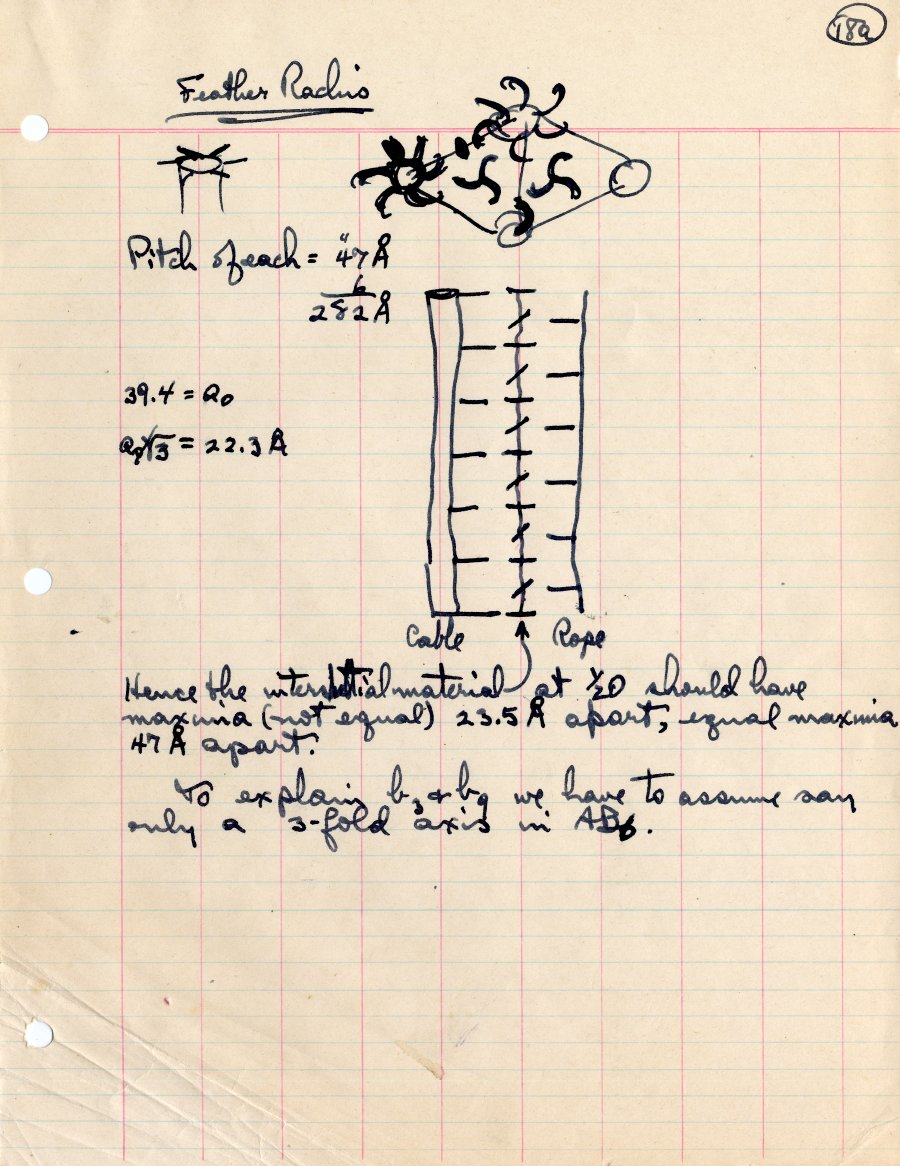 18a
Feather Rachis
Pitch of each = 47 Å
6
282 Å
39.4 = a₀
a₀/√3 = 22.3 Å
Cable Rope
Hence the interstitial material at ½0 should have
maxima (not equal) 23.5 Å apart, equal maxima
47 Å apart.
To explain b₃ & b₉ we have to assume say
only a 3-fold axis in AB₆.